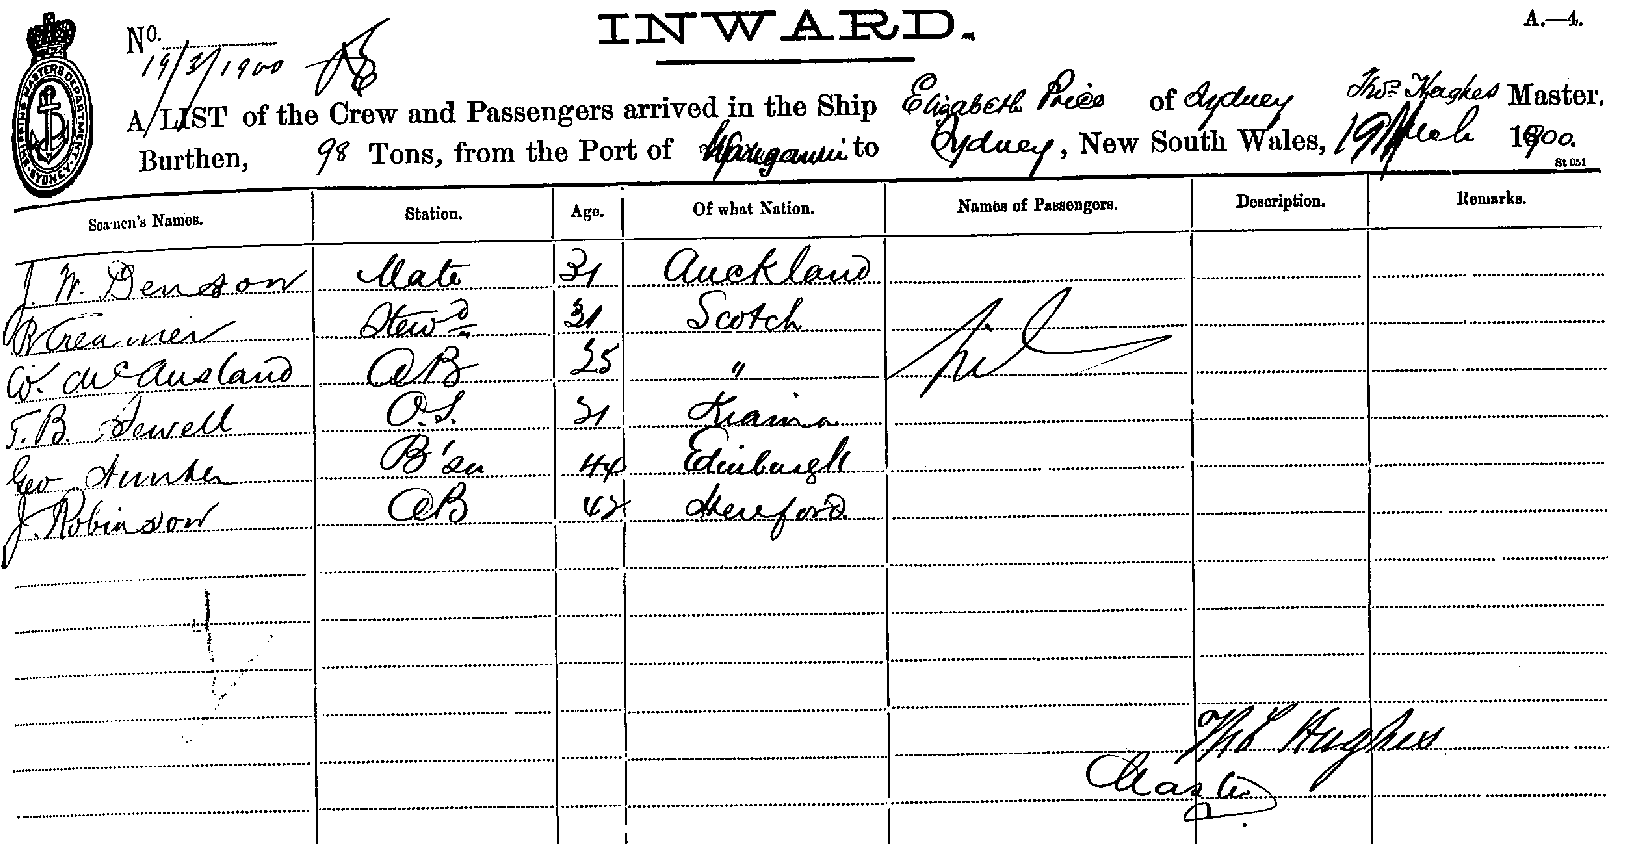 INWARD.
A.—4.
No.
19/3/1900
A LIST of the Crew and Passengers arrived in the Ship Elizabeth Price of Sydney Thos Hughes Master,
Burthen, 98 Tons, from the Port of Wanganui to Sydney, New South Wales, 19 March 1900.
St 051
Seamen's Names. Station. Age. Of what Nation. Names of Passengers. Description. Remarks.
J. W. Denson Mate 31 Auckland
R Creamer Stewd 31 Scotch
W. McAusland AB 25 " Nil
T. B. Sewell O.S. 21 Kiama
Geo Hunter B'sn 44 Edinburgh
J. Robinson AB 42 Hereford
Thos Hughes
Master